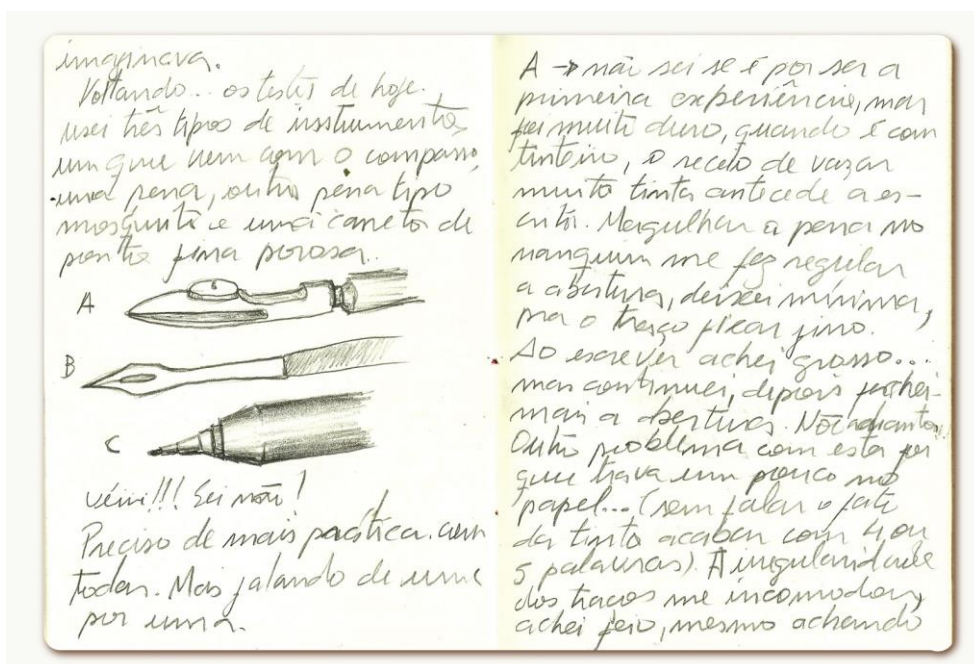 imaginava.
Voltando.. os testes de hoje.
usei três tipos de instrumentos,
um que vem com o compasso,
uma pena, outra pena tipo
mosquito e uma caneta de
ponta fina porosa.
A
B
C
véiii!!! Sei não!
Preciso de mais prática com
todas. Mas falando de uma
por uma.
A → não sei se é por ser a
primeira experiência, mas
foi muito duro, quando é com
tinteiro, o receio de vazar
muita tinta antecede a es-
crita. Mergulhar a pena no
nanquim me fez regular
a abertura, deixei mínima,
pra o traço ficar fino.
Ao escrever achei grosso...
mas continuei, depois fechei
mais a abertura. Não adiantou!!
Outro problema com esta foi
que trava um pouco no
papel... (sem falar o fato
da tinta acabar com 4 ou
5 palavras). A irregularidade
dos traços me incomodou,
achei feio, mesmo achando